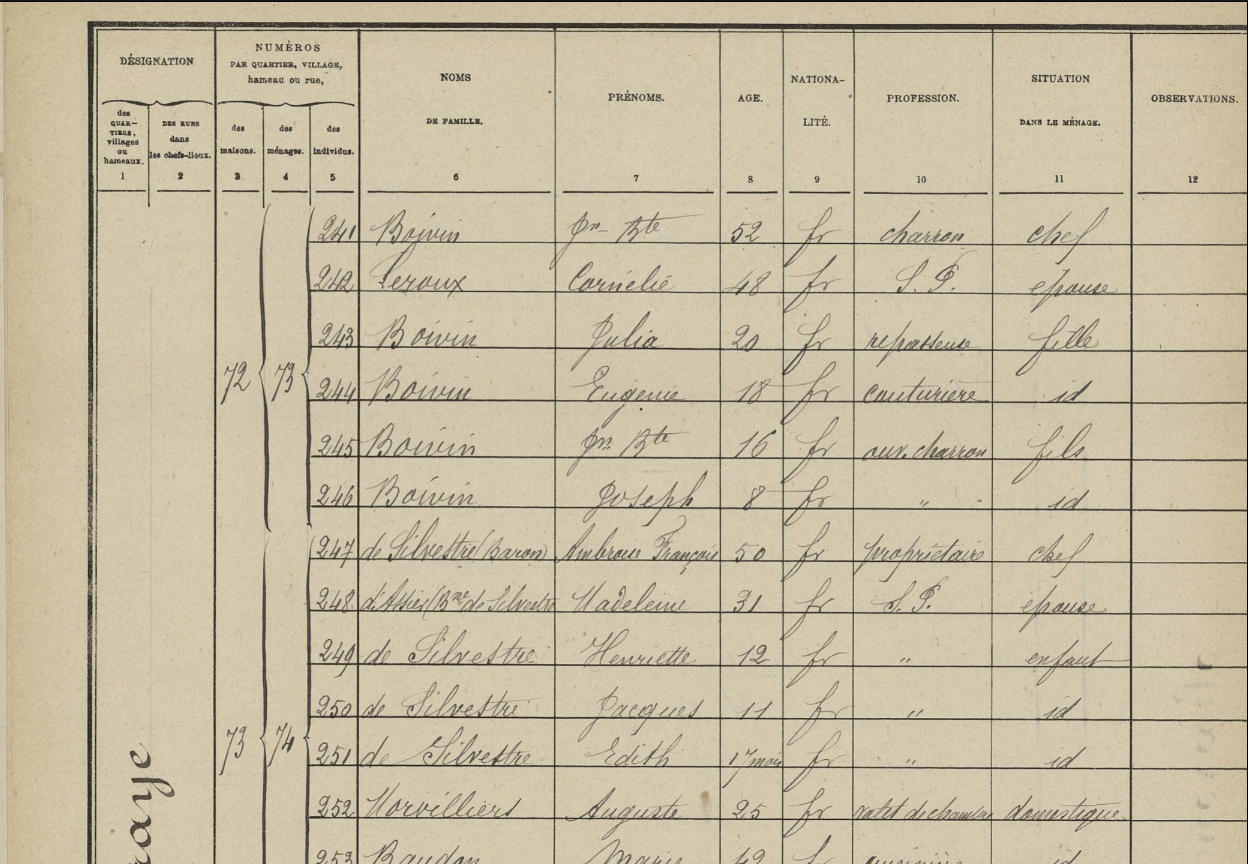 DÉSIGNATION
NUMÉROS
PAR QUARTIER, VILLAGE,
hameau ou rue,
des QUAR-TIERS, villages ou hameaux.
DES RUES dans les chefs-lieux.
des maisons.
des ménages.
des individus.
NOMS
DE FAMILLE.
PRÉNOMS.
AGE.
NATIONA-
LITÉ.
PROFESSION.
SITUATION
DANS LE MÉNAGE.
OBSERVATIONS.
1 2 3 4 5 6 7 8 9 10 11 12
241 Boivin Jn Bte 52 fr charron chef
242 Leroux Cornélie 48 fr S. P. epouse
243 Boivin Julia 20 fr repasseuse fille
72 73 244 Boivin Eugenie 18 fr couturière id
245 Boivin Jn Bte 16 fr ouv. charron fils
246 Boivin Joseph 8 fr " id
247 de Silvestre (Baron) Ambroise François 50 fr propriétaire chef
248 d'Assier (Bne de Silvestre Madeleine 31 fr S. P. epouse
249 de Silvestre Henriette 12 fr " enfant
250 de Silvestre Jacques 11 fr " id
73 74 251 de Silvestre Edith 17 mois fr " id
252 Morvilliers Auguste 25 fr valet de chambre domestique
253 Baudon Marie 42 fr cuisinière id
raye